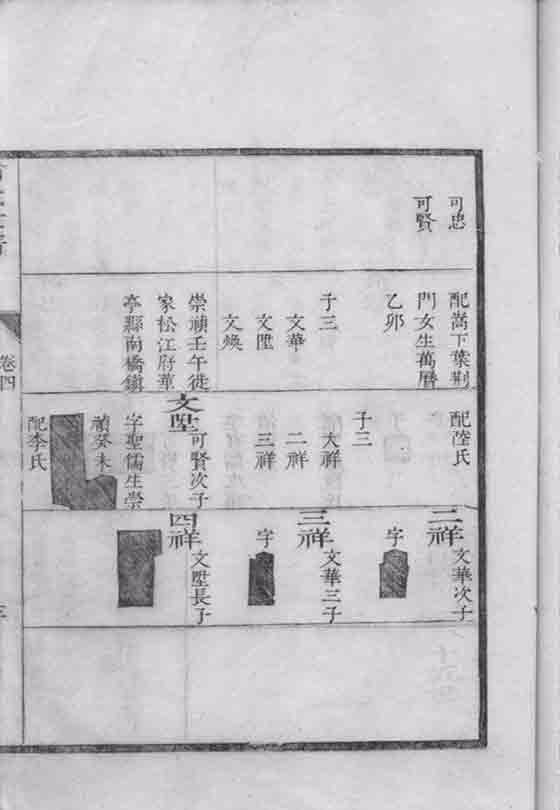 可忠
可賢
配嵩下葉荆
門女生萬曆
乙卯
子三
文華
文陞
文煥
崇禎壬午徙
家松江府華
亭縣南橋鎮
配陸氏
子三
大祥
二祥
三祥
文陞
可賢次子
字聖儒生崇
禎癸未
配李氏
二祥
文華次子
字
三祥
文華三子
字
四祥
文陞長子
卷四